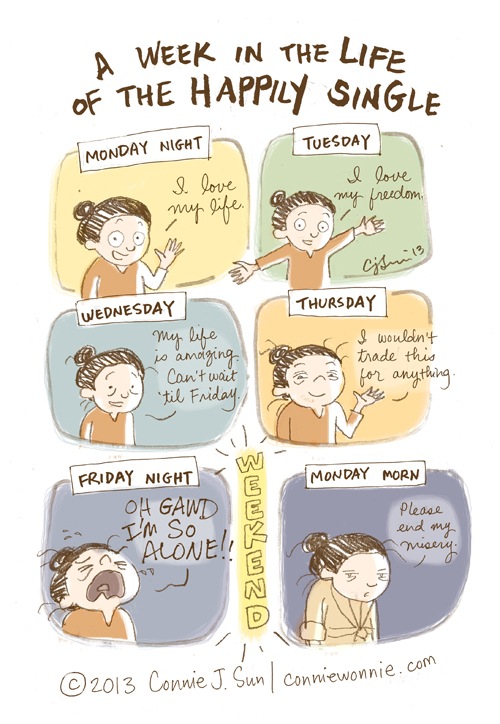 A WEEK IN THE LIFE
OF THE HAPPILY SINGLE
MONDAY NIGHT
I love
my life.
TUESDAY
I love
my freedom.
CJSun '13
WEDNESDAY
my life
is amazing.
Can't wait
'til Friday.
THURSDAY
I wouldn't
trade this
for anything.
FRIDAY NIGHT
OH GAWD
I'M SO
ALONE!!
WEEKEND
MONDAY MORN
Please
end my
misery.
© 2013 Connie J. Sun | conniewonnie.com